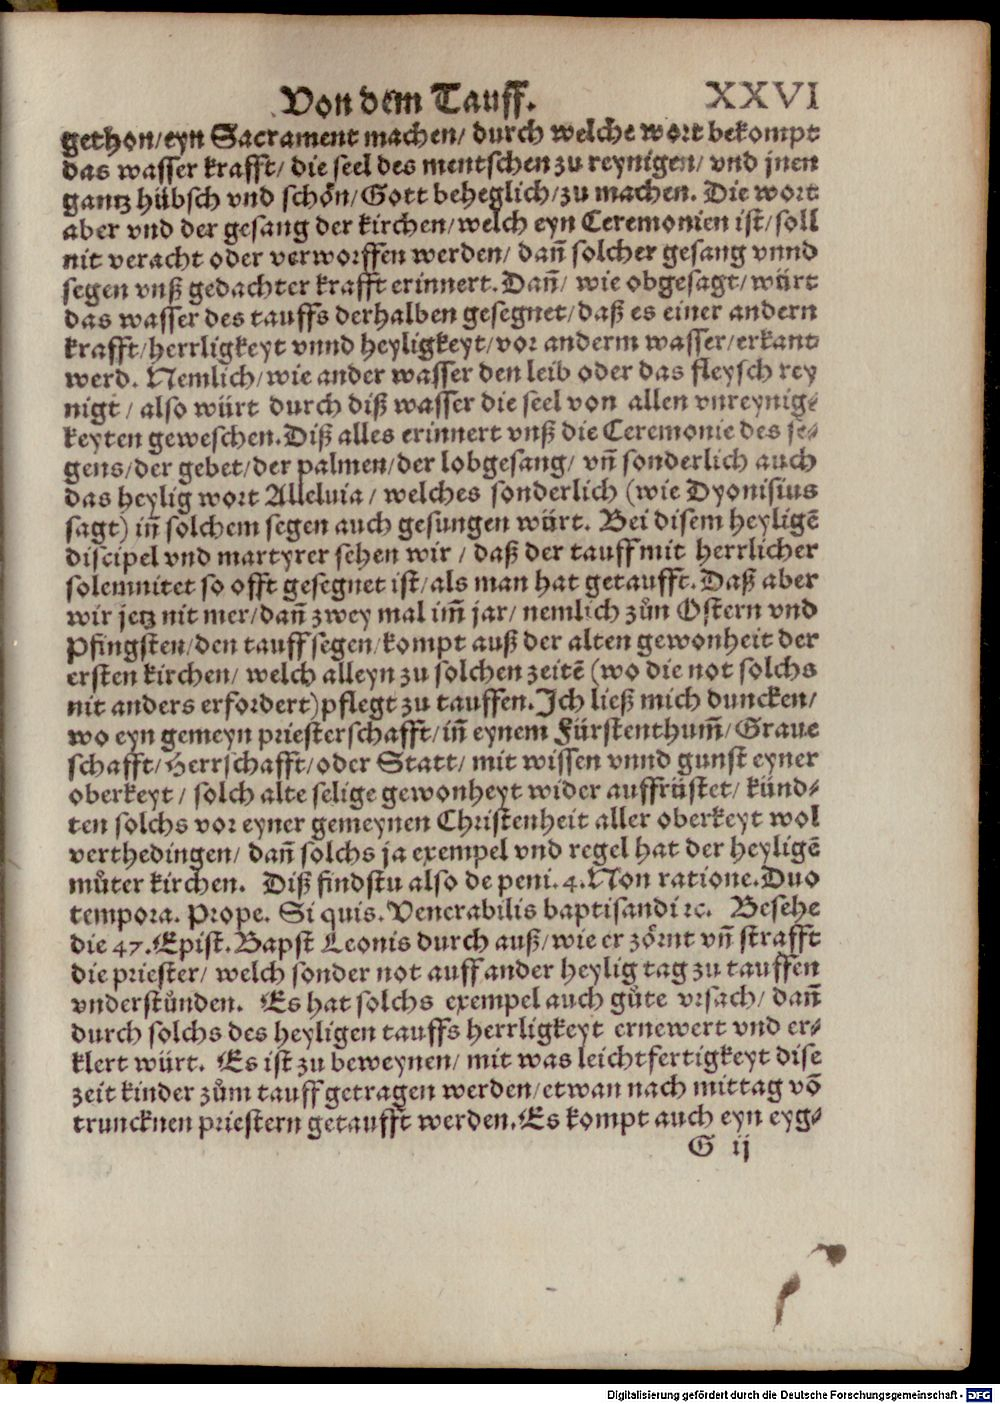 Von dem Tauff. XXVI
gethon/eyn Sacrament machen/ durch welche wort bekompt
das wasser krafft/ die seel des mentschen zu reynigen/ vnd jnen
gantz hübsch vnd schön/Gott beheglich/zu machen. Die wort
aber vnd der gesang der kirchen/welch eyn Ceremonien ist/soll
nit veracht oder verworffen werden/ dañ solcher gesang vnnd
segen vnß gedachter krafft erinnert. Dañ/ wie obgesagt/würt
das wasser des tauffs derhalben gesegnet/daß es einer andern
krafft/herrligkeyt vnnd heyligkeyt/vor anderm wasser/erkant
werd. Nemlich/wie ander wasser den leib oder das fleysch rey
nigt / also würt durch diß wasser die seel von allen vnreynig-
keyten geweschen. Diß alles erinnert vnß die Ceremonie des se-
gens/der gebet/der palmen/der lobgesang/ vñ sonderlich auch
das heylig wort Alleluia / welches sonderlich (wie Dyonisius
sagt) iñ solchem segen auch gesungen würt. Bei disem heyligẽ
discipel vnd martyrer sehen wir / daß der tauff mit herrlicher
solemnitet so offt gesegnet ist/als man hat getaufft. Daß aber
wir jetz nit mer/dañ zwey mal im̃ jar/ nemlich zům Ostern vnd
Pfingsten/den tauff segen/kompt auß der alten gewonheit der
ersten kirchen/ welch alleyn zu solchen zeitẽ (wo die not solchs
nit anders erfordert) pflegt zu tauffen. Ich ließ mich duncken/
wo eyn gemeyn priesterschafft/iñ eynem Fürstenthum̃/Graue
schafft/Herrschafft/oder Statt/ mit wissen vnnd gunst eyner
oberkeyt / solch alte selige gewonheyt wider auffrüstet/ künd-
ten solchs vor eyner gemeynen Christenheit aller oberkeyt wol
verthedingen/ dañ solchs ja exempel vnd regel hat der heyligẽ
můter kirchen. Diß findstu also de peni. 4. Non ratione. Duo
tempora. Prope. Si quis. Venerabilis baptisandi ⁊c. Besehe
die 47. Epist. Bapst Leonis durch auß/wie er zörnt vñ strafft
die priester/ welch sonder not auff ander heylig tag zu tauffen
vnderstůnden. Es hat solchs exempel auch gůte vrsach/ dañ
durch solchs des heyligen tauffs herrligkeyt ernewert vnd er-
klert würt. Es ist zu beweynen/ mit was leichtfertigkeyt dise
zeit kinder zům tauff getragen werden/etwan nach mittag võ
truncknen priestern getaufft werden. Es kompt auch eyn eyg-
G ij
Digitalisierung gefördert durch die Deutsche Forschungsgemeinschaft - DFG